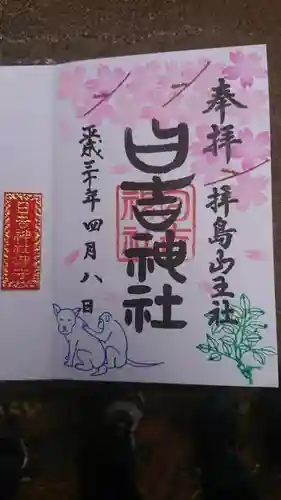 奉拝
拝島山王社
日吉神社
平成三十年四月八日
日吉神社
日吉神社御守